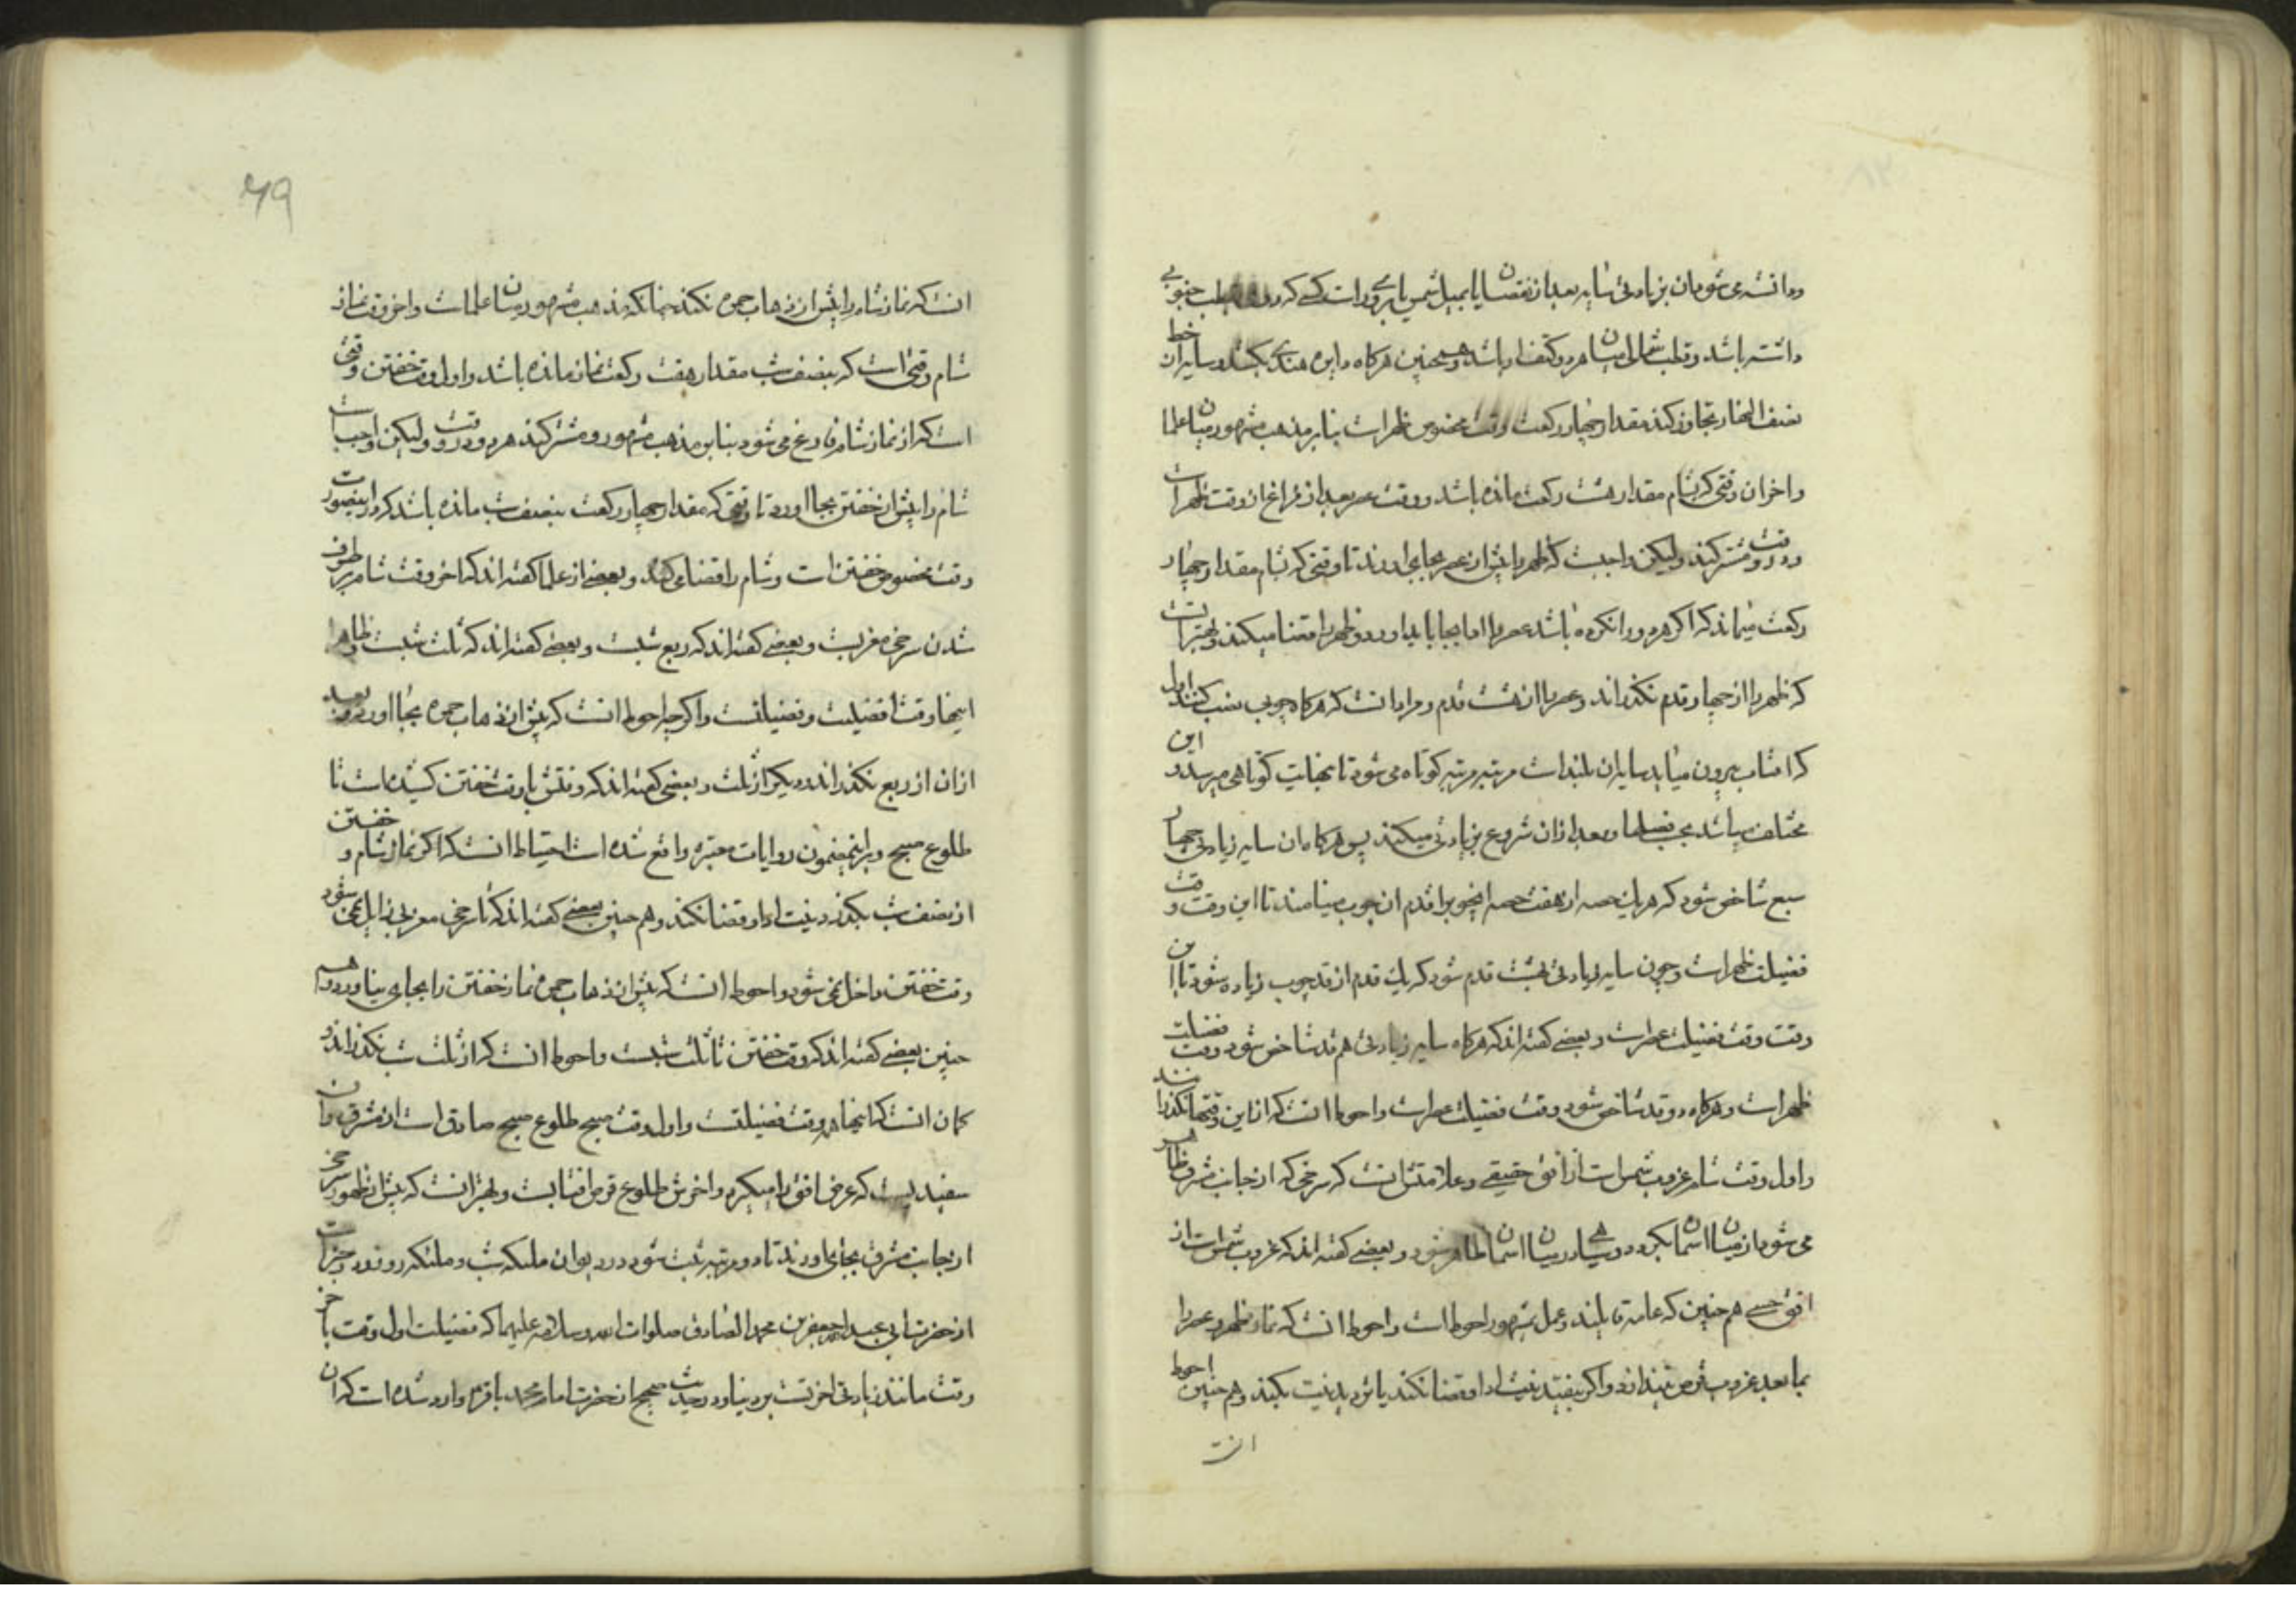 ودانسته می شود ان بزیادتی سایه بعد از نقصان یا بمیل شمس با بروی راست کسی که رو بقطب جنوبی
داشته باشد و قطب شمالی میان هر دو کتف او باشد و همچنین هرکاه دایره هندی بکشد و سایه از ان خط
نصف النهار تجاوز کند مقدار چهار رکعت وقت مخصوص ظهر است بنابر مذهب مشهور میان علما
واخر ان وقتی که بشام مقدار هشت رکعت مانده باشد و وقت عصر بعد از فراغ از وقت ظهر است
و در وقت مشترکند ولیکن واجبست که ظهر را پیش از عصر بجای اورند تا وقتی که بشام مقدار چهار
رکعت بماند که اکر هر دو را نکرده باشد عصر را ادا بجا باید اورد و ظهر را قضا میکند و بهتر انست
که ظهر را از چهار قدم نکذراند و عصر را از هشت قدم و مراد انست که هرکاه چوبی نصب کنند اول
که افتاب بیرون میاید سایه ان بلند است مرتبه مرتبه کوتاه می شود تا بنهایت کوتاهی میرسد و این
مختلف میباشد بحسب فصلها و بعد از ان شروع بزیادتی میکند پس هرکاه ان سایه زیادتی چهار
سبع شاخص شود که هریك حصه از هفت حصه این چوب را قدم ان چوب مینامند تا این وقت وقت
فضیلت ظهر است و چون سایه زیادتی هشت قدم شود که یك قدم از قد چوب زیاده شود تا این
وقت وقت فضیلت عصر است و بعضی کفته اند که هرکاه سایه زیادتی هم قد شاخص شود وقت فضیلت
ظهر است و هرکاه دو قد شاخص شود وقت فضیلت عصر است و احوط انست که از این وقتها نکذرانند
و اول وقت شام غروب شمس است از افق حقیقی و علامتش انست که سرخی که از جانب مشرق ظاهر
می شود از میان اسمان بکردد و سیاهی در میان اسمان ظاهر شود و بعضی کفته اند که غروب شمس است از
افق حسی هم چنین که عامه قایلند و عمل بمشهور احوط است و احوط انست که نماز ظهر و عصر را
بما بعد غروب قرص نیندازد و اکر بیفتد نیت ادا و قضا نکند یا تردید نیت بکند و هم چنین احوط
انست
69
انست که نماز شام را پیش از ذهاب حمره نکند چنانکه مذهب مشهور میان علماست و اخر وقت نماز
شام وقتی است که بنصف شب مقدار هفت رکعت نماز مانده باشد و اول وقت خفتن وقتی
است که از نماز شام فارغ می شود بنابر مذهب مشهور و مشترکند هر دو در وقت ولیکن واجب است
شام را پیش از خفتن بجا اورد تا وقتی که مقدار چهار رکعت بنصف شب مانده باشد که در اینصورت
وقت مخصوص خفتن است و شام را قضا می کند و بعضی از علما کفته اند که اخر وقت شام برطرف
شدن سرخی مغربست و بعضی کفته اند که ربع شبست و بعضی کفته اند که ثلث شبست و ظاهرا
اینها وقت افضلیت و فضیلتست و اکر چه احوط انست که پیش از ذهاب حمره بجا اورد و بعد
از ان از ربع نکذراند و دیکر از ثلث و بعضی کفته اند که وقتش با وقت خفتن کشیده است تا
طلوع صبح و براینمضمون روایات معتبره واقع شده است احتیاط انست که اکر نماز شام و خفتن
از نصف شب بکذرد نیت ادا و قضا نکند و هم چنین بعضی کفته اند که تا سرخی مغربی زایل نمی شود
وقت خفتن داخل نمی شود و احوط انست که پیش از ذهاب حمره نماز خفتن را بجای نیاورد و هم
چنین بعضی کفته اند که وقت خفتن تا ثلث شبست و احوط انست که از ثلث شب نکذراند و
کمان انست که اینها همه وقت فضیلتست و اول وقت صبح طلوع صبح صادق است از مشرق و ان
سفیدیست که عرض افق را میکیرد و اخرش طلوع قرص افتابست و بهتر انست که پیش از ظهور سرخی
از جانب مشرق بجای اورند تا دو مرتبه ثبت شود در دیوان ملئکه شب و ملئکه روز و در خبر است
از حضرت ابی عبد الله جعفر بن محمد الصادق صلوات الله و سلامه علیهما که فضیلت اول وقت بر اخر
وقت مانند زیادتی اخرتست بر دنیا و در حدیث صحیح از حضرت امام محمد باقر وارد شده است که ان